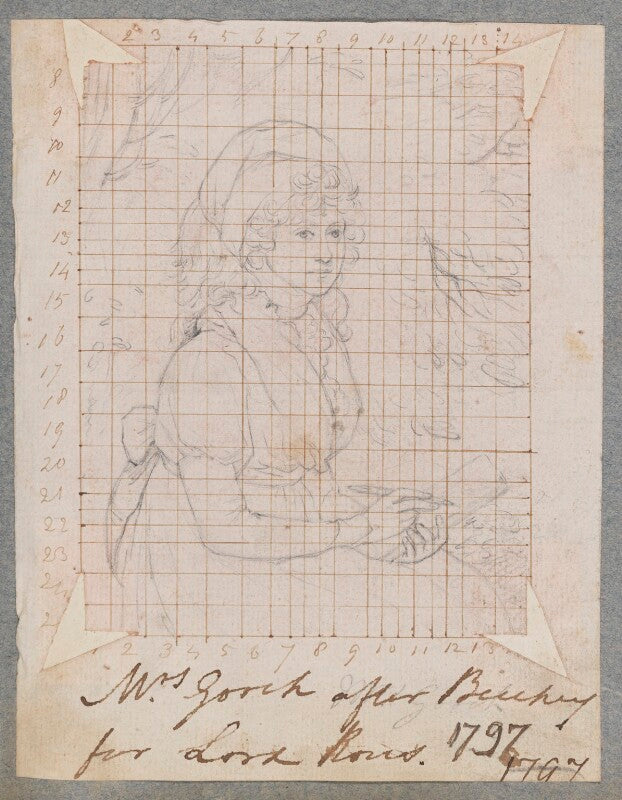 2 3 4 5 6 7 8 9 10 11 12 13 14
8
9
10
11
12
13
14
15
16
17
18
19
20
21
22
23
2 3 4 5 6 7 8 9 10 11 12 13
Mrs Gooch after Beechey
for Lord Rous. 1797
1797